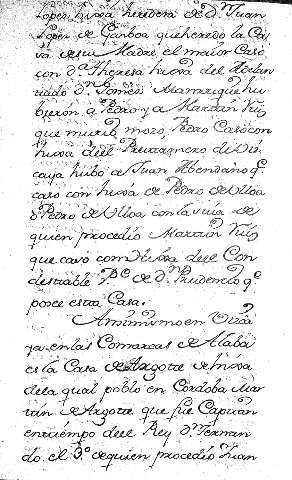 Lopez hixa heredera de Dn. Juan
Lopez de Ganboa que heredo la Ca
sa de su Madre el maior Caso
con Da. Theresa hixa del Adelan
tado Dn. Tomas que hu
bieron a Pedro y a Martin Ruiz
que murio mozo, Pedro Caso con
hixa del de Viz
caya hubo a Juan Abendaño q.
caso con hixa de Pedro de Ulloa
Pedro de Ulloa con la suia de
quien procedio Martin Ruiz
que caso con hixa del Con
destable Po. de Dn. Prudencio q.
posee esta Casa.
Asimismo en Vizca
ya en las Comarcas de Alaba
es la Casa de Argote de hixos
de la qual poblo en Cordoba Mar
tin de Argote que fue Capitan
en tiempo del Rey Dn. Fernan
do el 3o. de quien procedio Juan